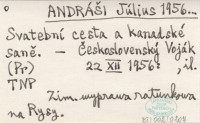 ANDRÁŠI Július 1956...
Svatební cesta a Kanadské
saně. – Československý Voják
(Pr) 22 XII 1956. , il.
TNP
Zim. wyprawa ratunkowa
na Rysy.